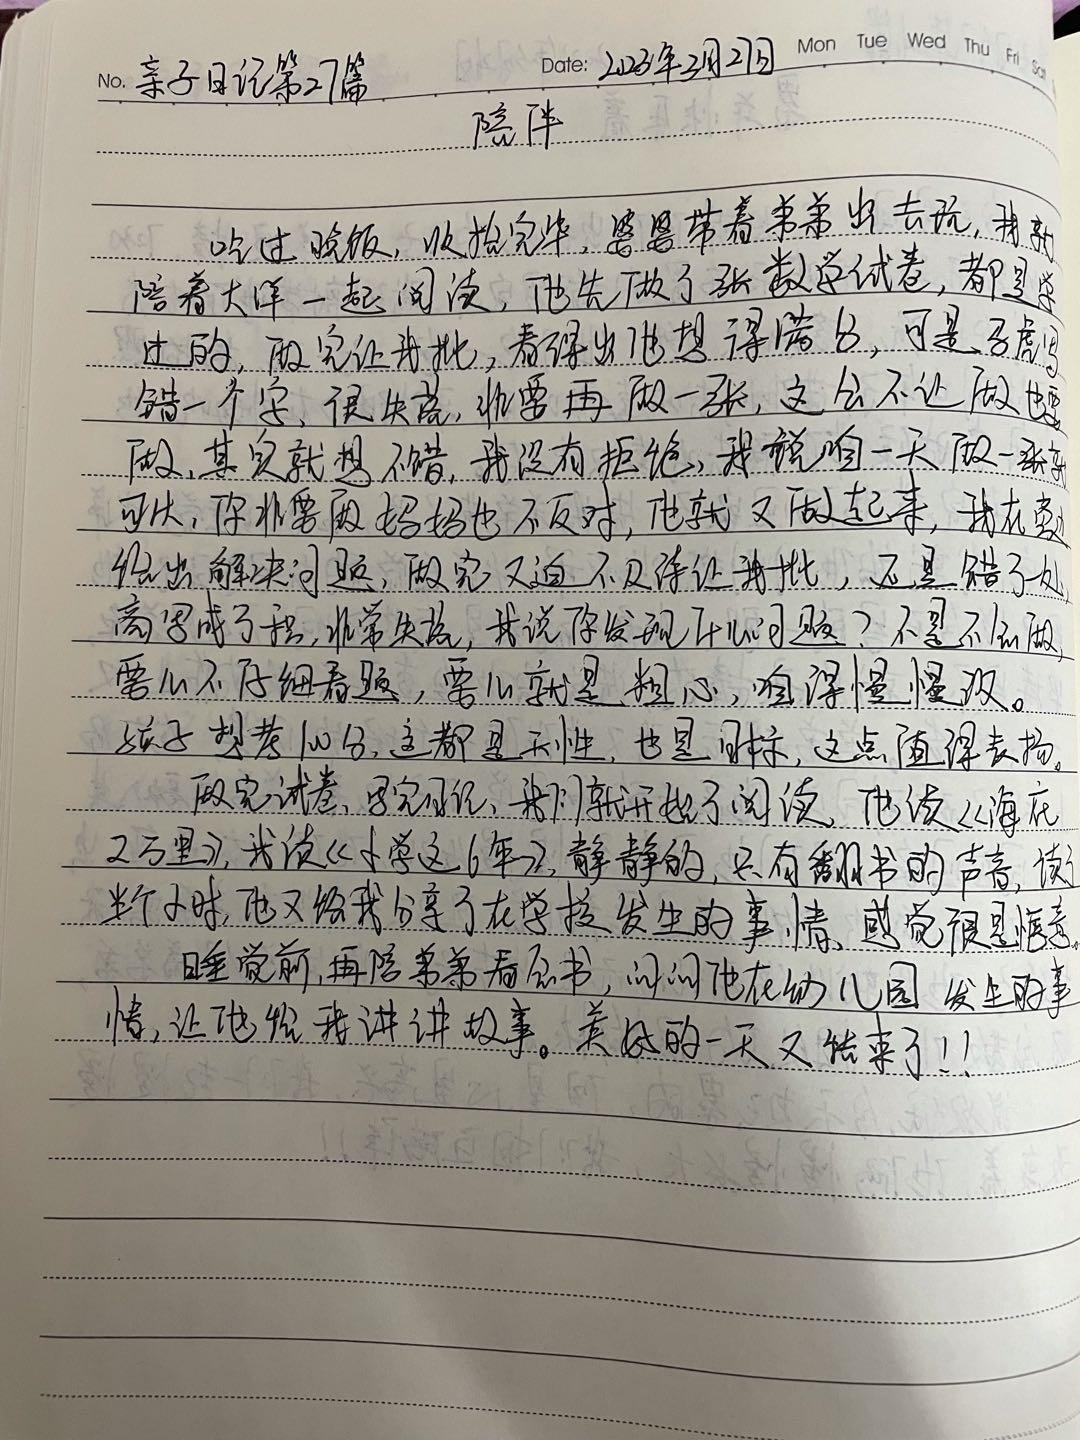 No. 亲子日记第27篇 Date: 2023年3月27日 Mon Tue Wed Thu Fri Sat
陪伴
吃过晚饭，收拾完毕，婆婆带着弟弟出去玩，我就
陪着大洋一起阅读，他先做了张数学试卷，都是学
过的，做完让我批，看得出他想得满分，可是马虎写
错一个字，很失落，非要再做一张，这会不让做也要
做，其实就想不错，我没有拒绝，我说咱一天做一张就
可以，你非要做妈妈也不反对，他就又做起来，我在
给出解决问题，做完又迫不及待让我批，还是错了一处，
高写成了，非常失落，我说你发现什么问题？不是不会做，
要么不仔细看题，要么就是粗心，咱得慢慢改。
孩子想考100分，这都是天性，也是目标，这点值得表扬。
做完试卷，写完日记，我们就开始了阅读，他读《海底
2万里》，我读《小学这6年》，静静的，只有翻书的声音，读了
半个小时，他又给我分享了在学校发生的事情，感觉很是惬意。
睡觉前，再陪弟弟看会书，问问他在幼儿园发生的事
情，让他给我讲讲故事。美好的一天又结束了！！